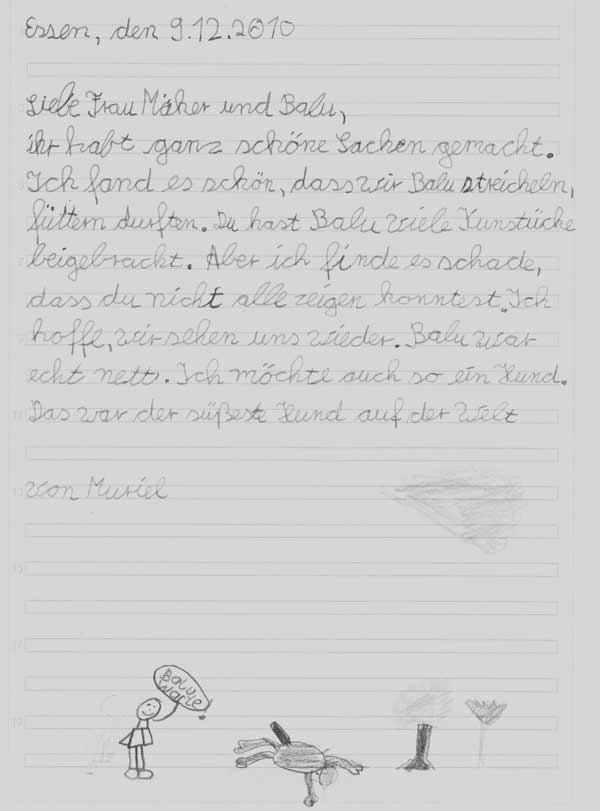 Essen, den 9.12.2010
Liebe Frau Mäher und Balu,
ihr habt ganz schöne Sachen gemacht.
Ich fand es schön, dass wir Balu streicheln,
füttern durften. Du hast Balu viele Kunstücke
beigebracht. Aber ich finde es schade,
dass du nicht alle zeigen konntest. Ich
hoffe, wir sehen uns wieder. Balu war
echt nett. Ich möchte auch so ein Hund.
Das war der süßeste Hund auf der Welt
von Muriel
Balu